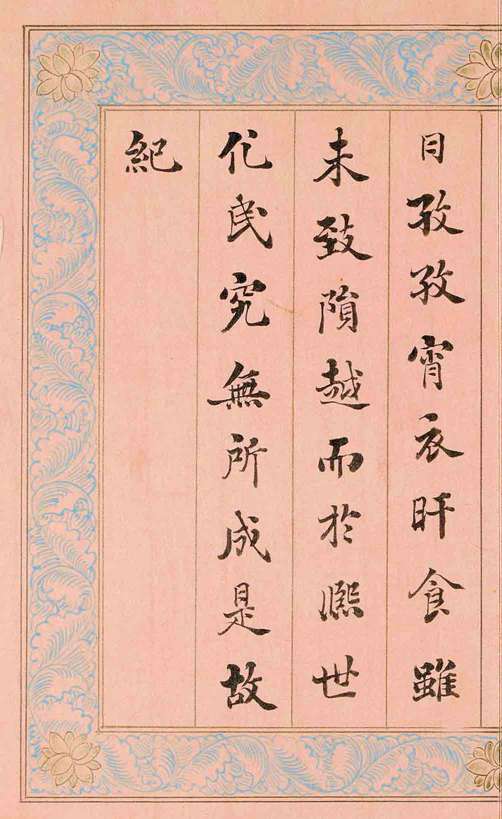 日孜孜宵衣旰食雖
未致隕越而於熙世
化民究無所成是故
紀